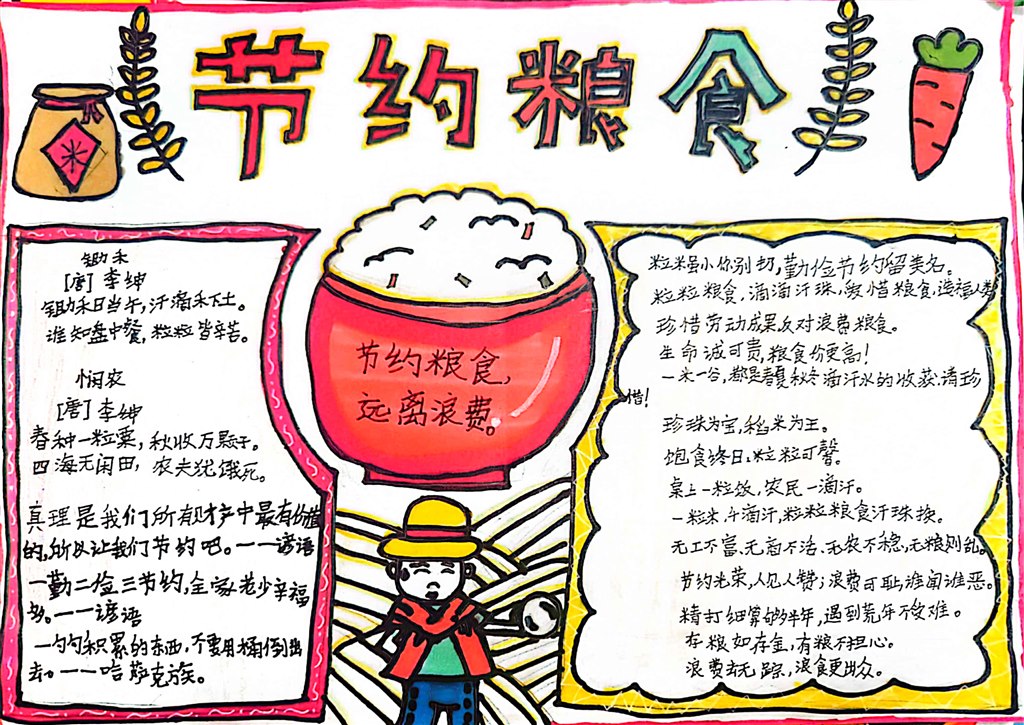 节约粮食
米
锄禾
[唐] 李绅
锄禾日当午,汗滴禾下土。
谁知盘中餐,粒粒皆辛苦。
悯农
[唐] 李绅
春种一粒粟,秋收万颗子。
四海无闲田,农夫犹饿死。
真理是我们所有财产中最有价值
的,所以让我们节约吧。——谚语
一勤二俭三节约,全家老少幸福
多。——谚语
一勺勺积累的东西,不要用桶倒出
去。——哈萨克族。
节约粮食,
远离浪费。
粒米虽小你别扔,勤俭节约留美名。
粒粒粮食,滴滴汗珠,爱惜粮食,造福人类
珍惜劳动成果反对浪费粮食。
生命诚可贵,粮食价更高!
一米一谷,都是春夏秋冬滴汗水的收获,请珍
惜!
珍珠为宝,稻米为王。
饱食终日,粒粒可馨。
桌上一粒饭,农民一滴汗。
一粒米,千滴汗,粒粒粮食汗珠换。
无工不富、无商不活、无农不稳,无粮则乱。
节约光荣,人见人赞;浪费可耻,谁闻谁恶。
精打细算够半年,遇到荒年不受难。
存粮如存金,有粮不担心。
浪费去无踪,浪食更出众。